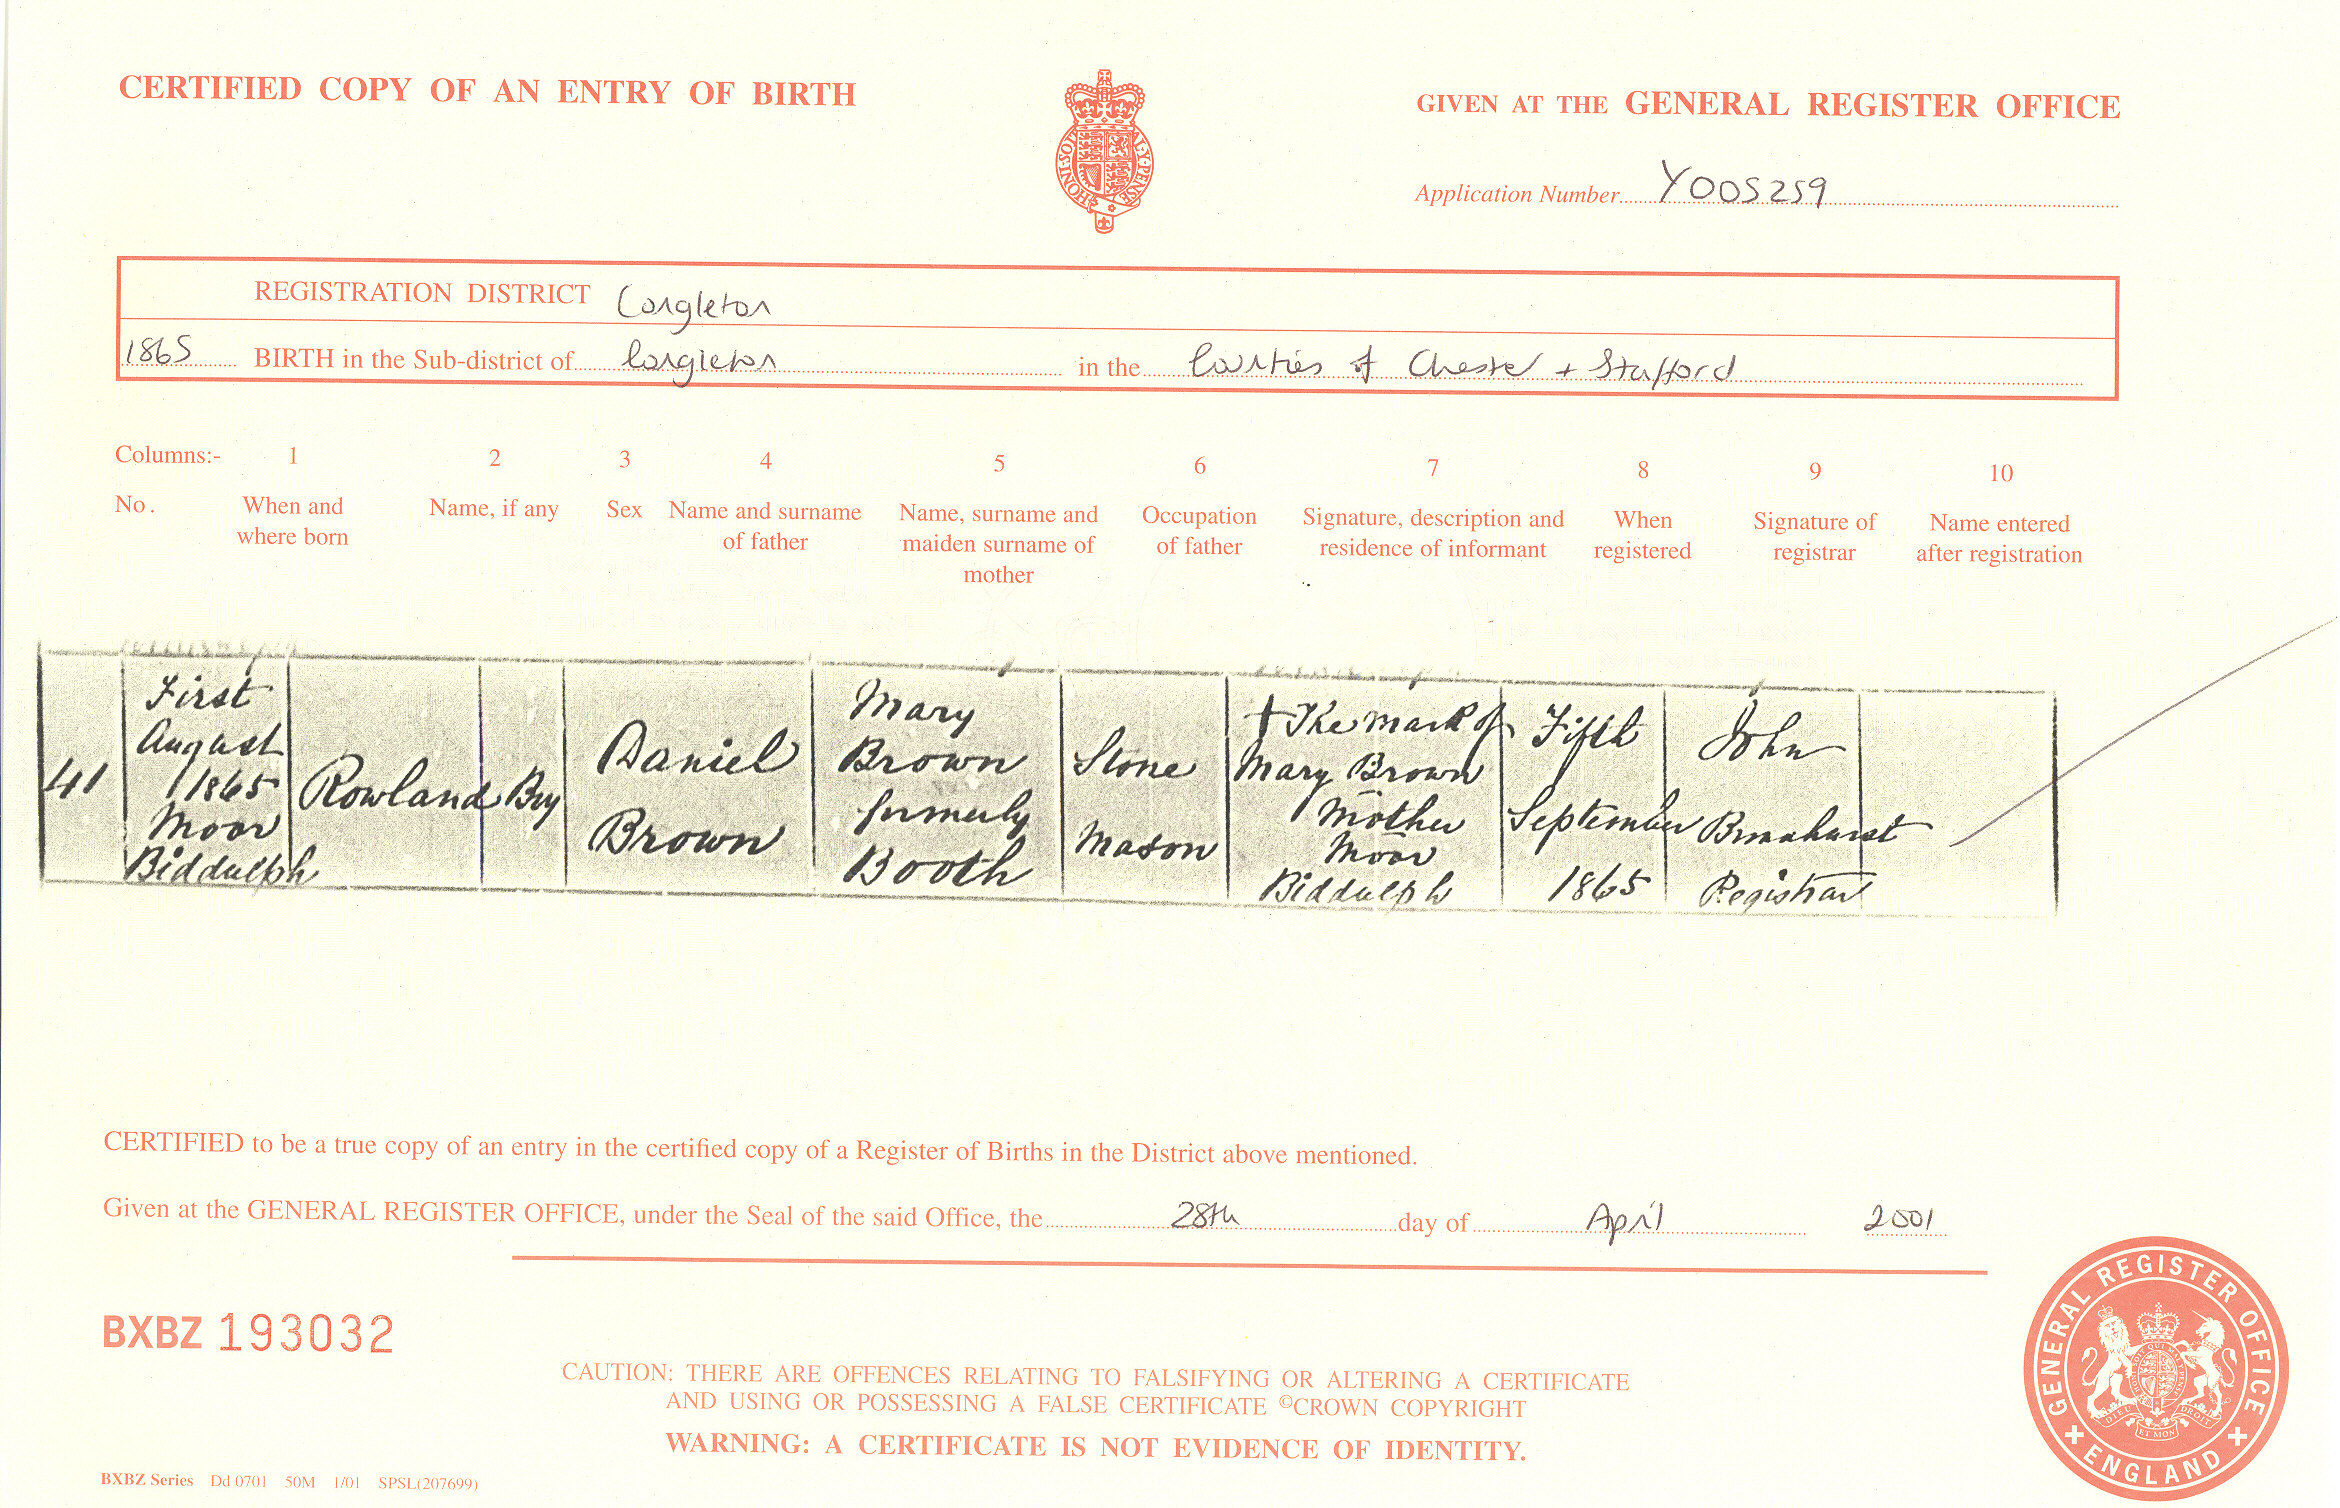 CERTIFIED COPY OF AN ENTRY OF BIRTH
GIVEN AT THE GENERAL REGISTER OFFICE
HONI·SOIT AL·Y·PENSE
Application Number Y005259
REGISTRATION DISTRICT Congleton
1865 BIRTH in the Sub-district of Congleton in the Counties of Chester + Stafford
Columns:- 1 2 3 4 5 6 7 8 9 10
No. When and where born
Name, if any
Sex
Name and surname of father
Name, surname and maiden surname of mother
Occupation of father
Signature, description and residence of informant
When registered
Signature of registrar
Name entered after registration
41
First
August
1865
Moor
Biddulph
Rowland
Boy
Daniel
Brown
Mary
Brown
formerly
Booth
Stone
Mason
† The mark of
Mary Brown
Mother
Moor
Biddulph
Fifth
September
1865
John
Registrar
CERTIFIED to be a true copy of an entry in the certified copy of a Register of Births in the District above mentioned.
Given at the GENERAL REGISTER OFFICE, under the Seal of the said Office, the 28th day of April 2001
BXBZ 193032
CAUTION: THERE ARE OFFENCES RELATING TO FALSIFYING OR ALTERING A CERTIFICATE
AND USING OR POSSESSING A FALSE CERTIFICATE ©CROWN COPYRIGHT
WARNING: A CERTIFICATE IS NOT EVIDENCE OF IDENTITY.
BXBZ Series Dd 0701 50M 1/01 SPSL(207699)
GENERAL REGISTER OFFICE
+ ENGLAND +
DIEU ET MON DROIT